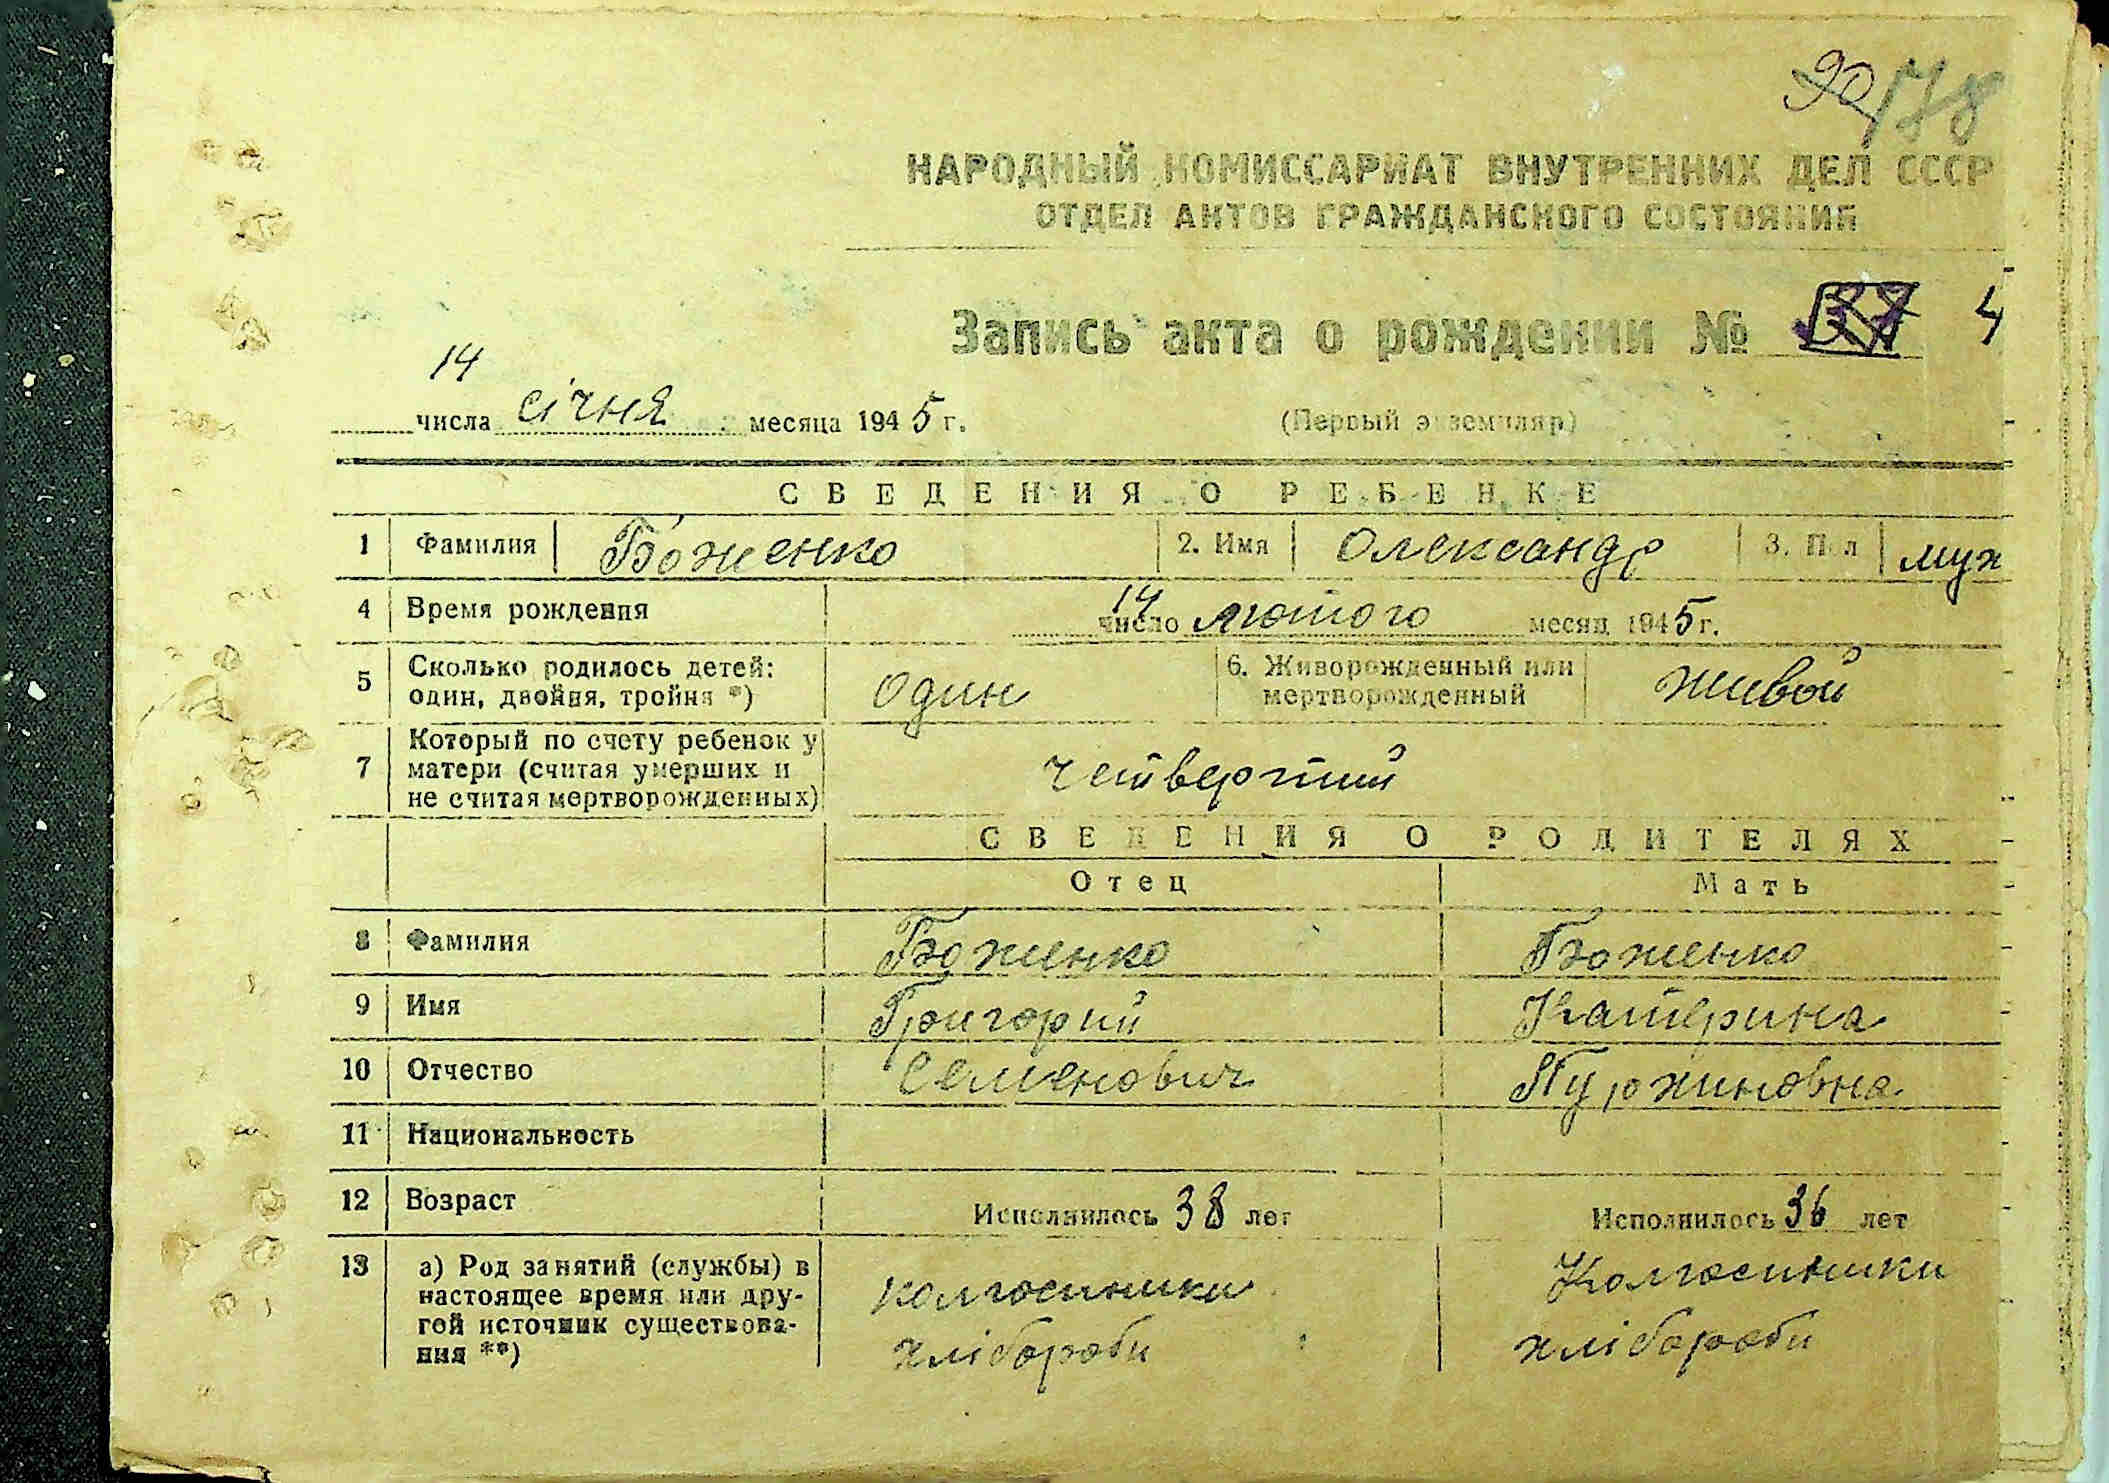 90 178
НАРОДНЫЙ КОМИССАРИАТ ВНУТРЕННИХ ДЕЛ СССР
ОТДЕЛ АКТОВ ГРАЖДАНСКОГО СОСТОЯНИЯ
Запись акта о рождении № 4
14 числа січня месяца 1945 г. (Первый экземпляр)
СВЕДЕНИЯ О РЕБЕНКЕ
1 Фамилия Боженко 2. Имя Олександр 3. Пол муж
4 Время рождения 14 число лютого месяц 1945 г.
5 Сколько родилось детей: один, двойня, тройня *) один 6. Живорожденный или мертворожденный живой
7 Который по счету ребенок у матери (считая умерших и не считая мертворожденных) четвертий
СВЕДЕНИЯ О РОДИТЕЛЯХ
Отец Мать
8 Фамилия Боженко Боженко
9 Имя Григорий Катерина
10 Отчество Семенович
11 Национальность
12 Возраст Исполнилось 38 лет Исполнилось 36 лет
13 а) Род занятий (службы) в настоящее время или дру-
гой источник существова-
ния **) колгоспники Колгоспники
хлібороби хлібороби